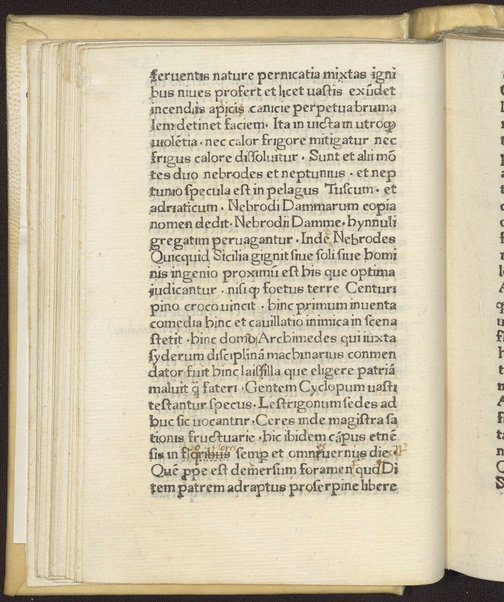 feruentis nature pernicatia mixtas igni
bus niues profert et licet uastis exūdet
incendiis apicis canicie perpetua bruma
lem detinet faciem. Ita in uicta in utroqꝫ
uiolētia · nec calor frigore mitigatur nec
frigus calore dissoluitur · Sunt et alii mō
tes duo nebrodes et neptunius · et nep
tunio specula est in pelagus Tuscum · et
adriaticum · Nebrodi Dammarum copia
nomen dedit · Nebrodii Damme · hynnuli
gregatim peruagantur · Inde Nebrodes
Quicquid Sicilia gignit siue soli siue homi
nis ingenio proximū est his que optima
iudicantur · nisi ꝙ foetus terre Centuri
pino croco uincit · hinc primum inuenta
comedia hinc et cauillatio inimica in scena
stetit · hinc domo Archimedes qui iuxta
syderum disciplinā machinarius conmen
dator fuit hinc lais illa que eligere patriā
maluit ꝙ fateri · Gentem Cyclopum uasti
testantur specus · Lestrigonum sedes ad
huc sic uocantur · Ceres inde magistra sa
tionis fructuarie · hic ibidem cāpus etne
sis in floribus semp et omni uernus die ·
Quē ppe est demersum foramen quo Di
tem patrem ad raptus proserpine libere